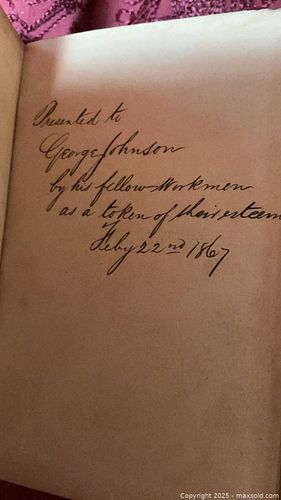 Presented to
George Johnson
by his fellow-Workmen
as a token of their esteem
Feby 22nd 1867
Copyright 2025 - maxsold.com